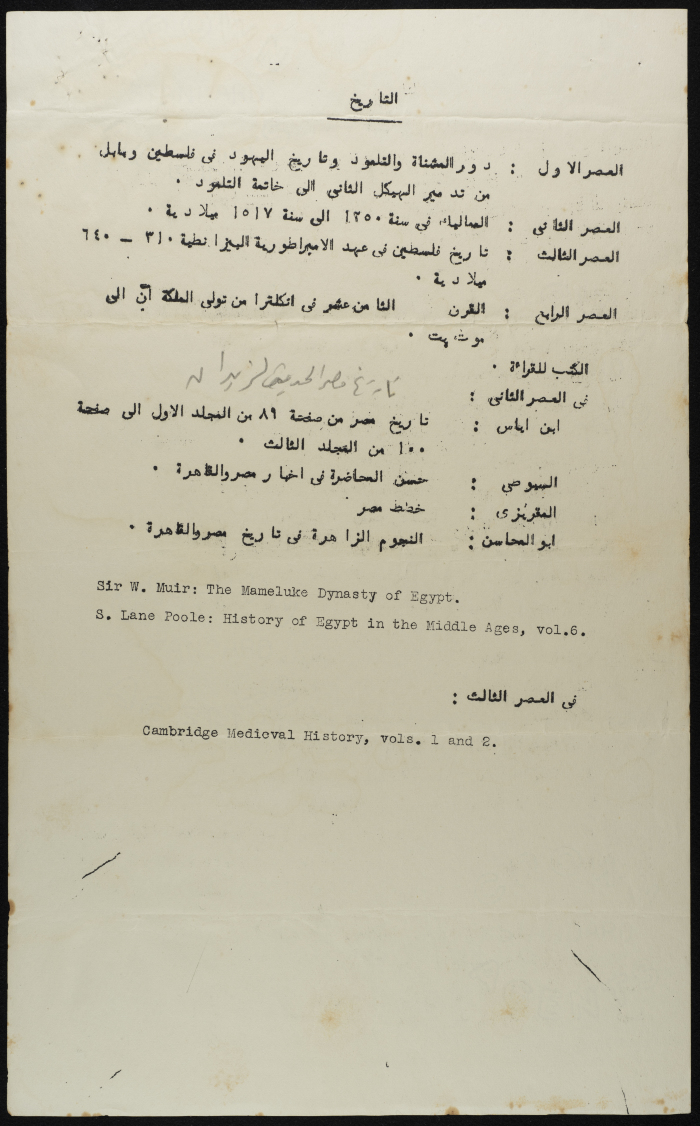 التاريخ
العصر الاول : دور المشناة والتلمود وتاريخ اليهود في فلسطين وبابل
من تدمير الهيكل الثاني الى خاتمة التلمود .
العصر الثاني : المماليك في سنة ١٢٥٠ الى سنة ١٥١٧ ميلادية .
العصر الثالث : تاريخ فلسطين في عهد الامبراطورية البيزانطية ٣١٠ – ٦٤٠
ميلادية .
العصر الرابع : القرن الثامن عشر في انكلترا من تولى الملكة آنّ الى
الكتب للقراءة .
تاريخ مصر الحديث لزيدان
في العصر الثاني :
ابن اياس : تاريخ مصر من صفحة ٨٩ من المجلد الاول الى صفحة
١٠٠ من المجلد الثالث .
السيوطي : حسن المحاضرة في اخبار مصر والقاهرة .
المقريزي : خطط مصر
ابو المحاسن : النجوم الزاهرة في تاريخ مصر والقاهرة .
Sir W. Muir: The Mameluke Dynasty of Egypt.
S. Lane Poole: History of Egypt in the Middle Ages, vol.6.
في العصر الثالث :
Cambridge Medieval History, vols. 1 and 2.